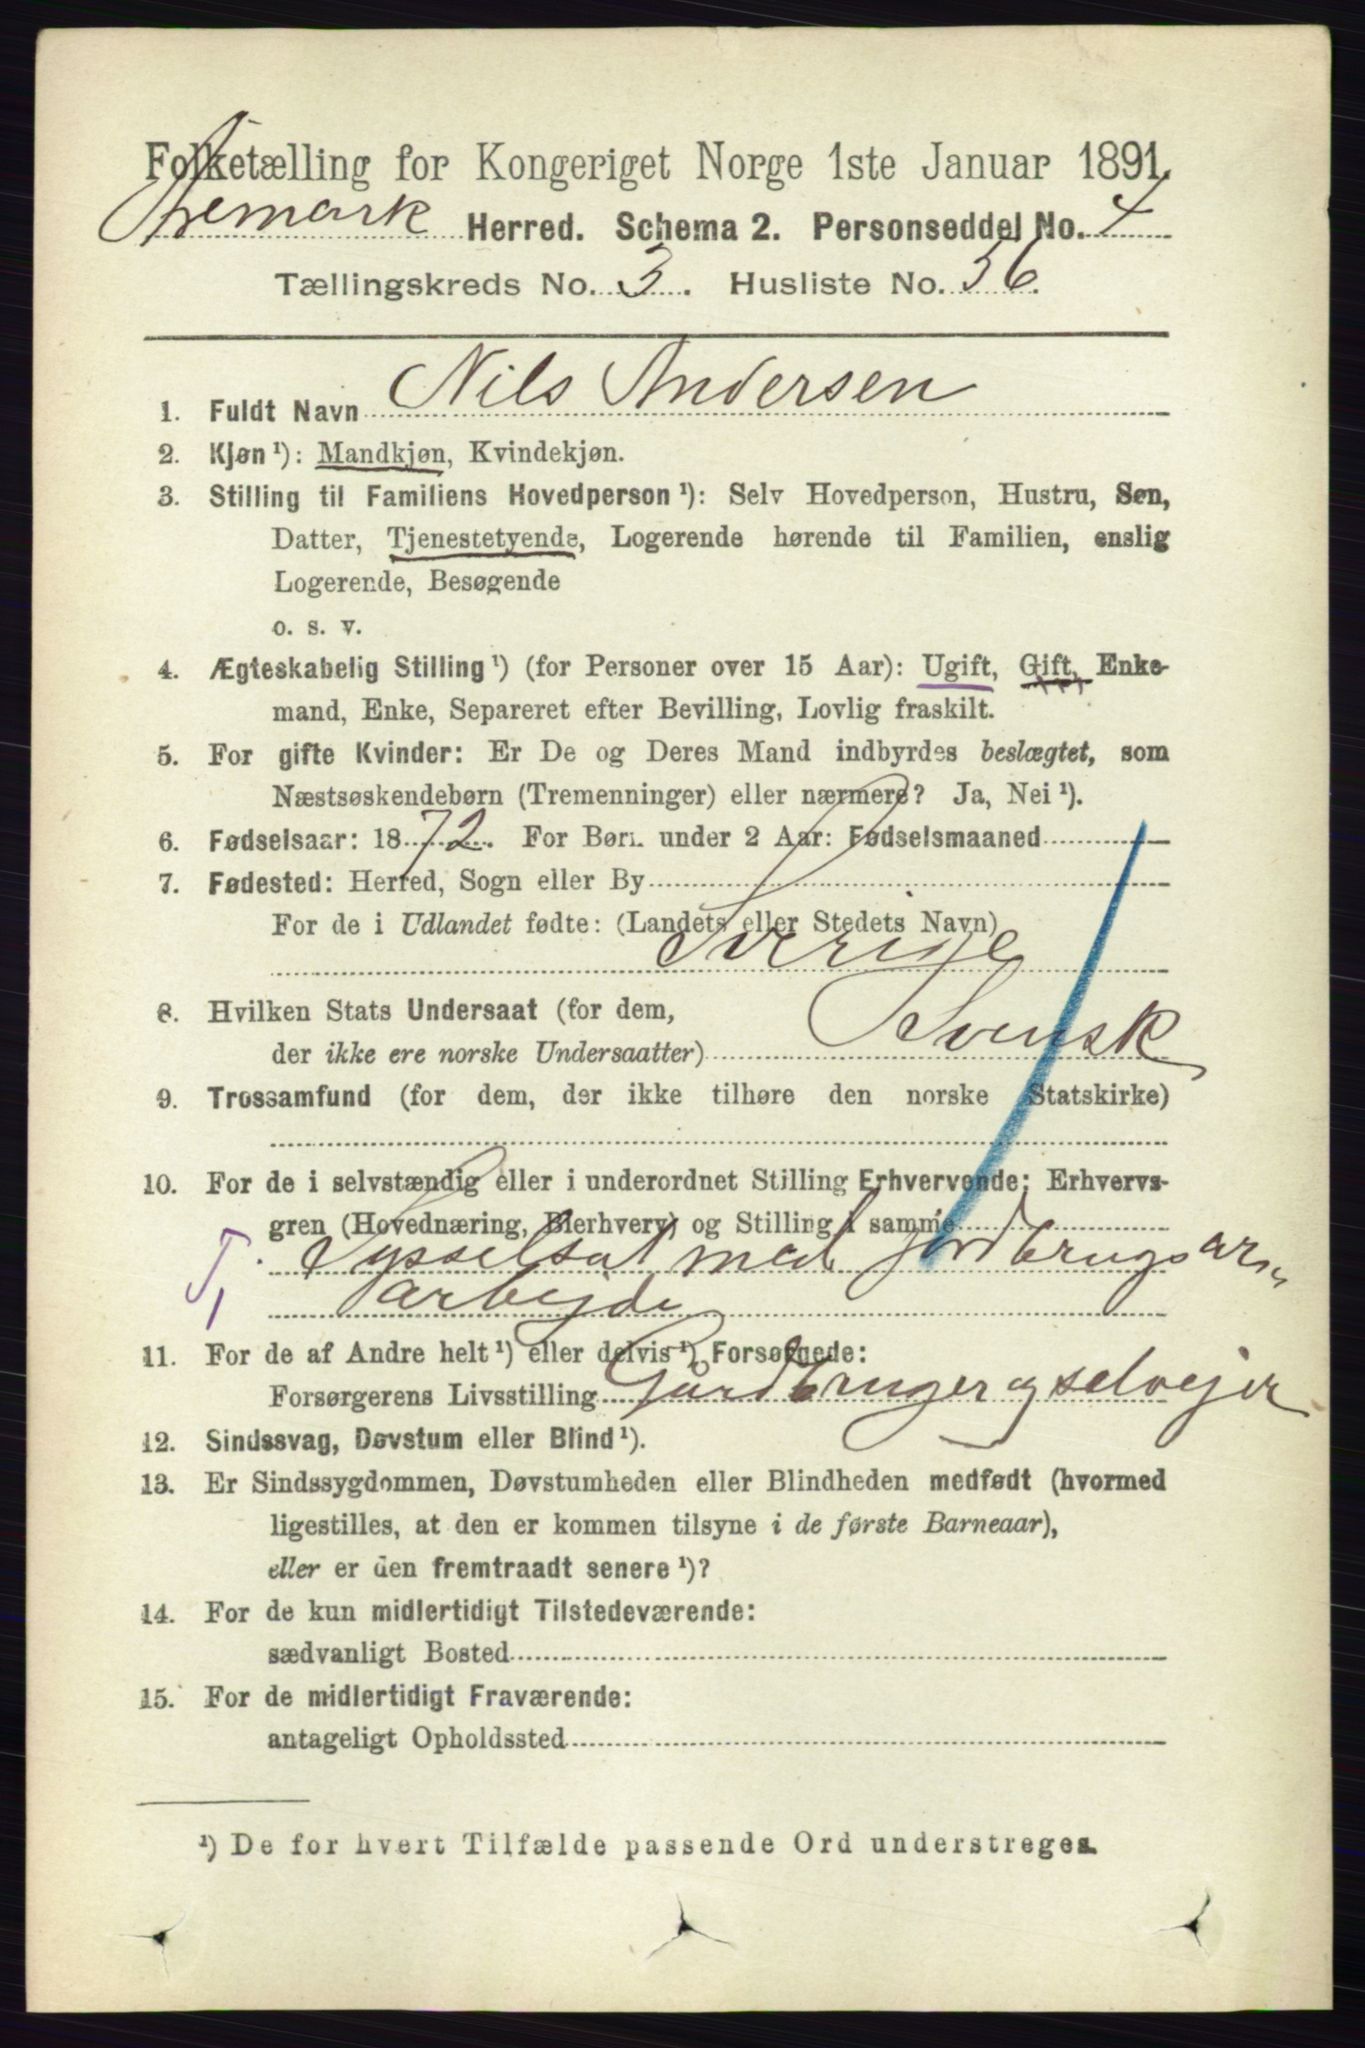 Folketælling for Kongeriget Norge 1ste Januar 1891.
Aremark Herred. Schema 2. Personseddel No. 4
Tællingskreds No. 3. Husliste No. 36.
1. Fuldt Navn Nils Andersen
2. Kjøn ¹): Mandkjøn, Kvindekjøn.
3. Stilling til Familiens Hovedperson ¹): Selv Hovedperson, Hustru, Søn,
Datter, Tjenestetyende, Logerende hørende til Familien, enslig
Logerende, Besøgende
o. s. v.
4. Ægteskabelig Stilling ¹) (for Personer over 15 Aar): Ugift, Gift, Enke-
mand, Enke, Separeret efter Bevilling, Lovlig fraskilt.
5. For gifte Kvinder: Er De og Deres Mand indbyrdes beslægtet, som
Næstsøskendebørn (Tremenninger) eller nærmere? Ja, Nei ¹).
6. Fødselsaar: 1872. For Børn under 2 Aar: Fødselsmaaned
7. Fødested: Herred, Sogn eller By
For de i Udlandet fødte: (Landets eller Stedets Navn)
Sverige
8. Hvilken Stats Undersaat (for dem,
der ikke ere norske Undersaatter) Svensk
9. Trossamfund (for dem, der ikke tilhøre den norske Statskirke)
10. For de i selvstændig eller i underordnet Stilling Erhvervende: Erhvervs-
gren (Hovednæring, Bierhverv) og Stilling i samme
Sysselsat med jordbrugsar
arbejde
11. For de af Andre helt ¹) eller delvis ¹) Forsørgede:
Forsørgerens Livsstilling Gårdbruger og selvejer
12. Sindssvag, Døvstum eller Blind ¹).
13. Er Sindssygdommen, Døvstumheden eller Blindheden medfødt (hvormed
ligestilles, at den er kommen tilsyne i de første Barneaar),
eller er den fremtraadt senere ¹)?
14. For de kun midlertidigt Tilstedeværende:
sædvanligt Bosted
15. For de midlertidigt Fraværende:
antageligt Opholdssted
¹) De for hvert Tilfælde passende Ord understreges.